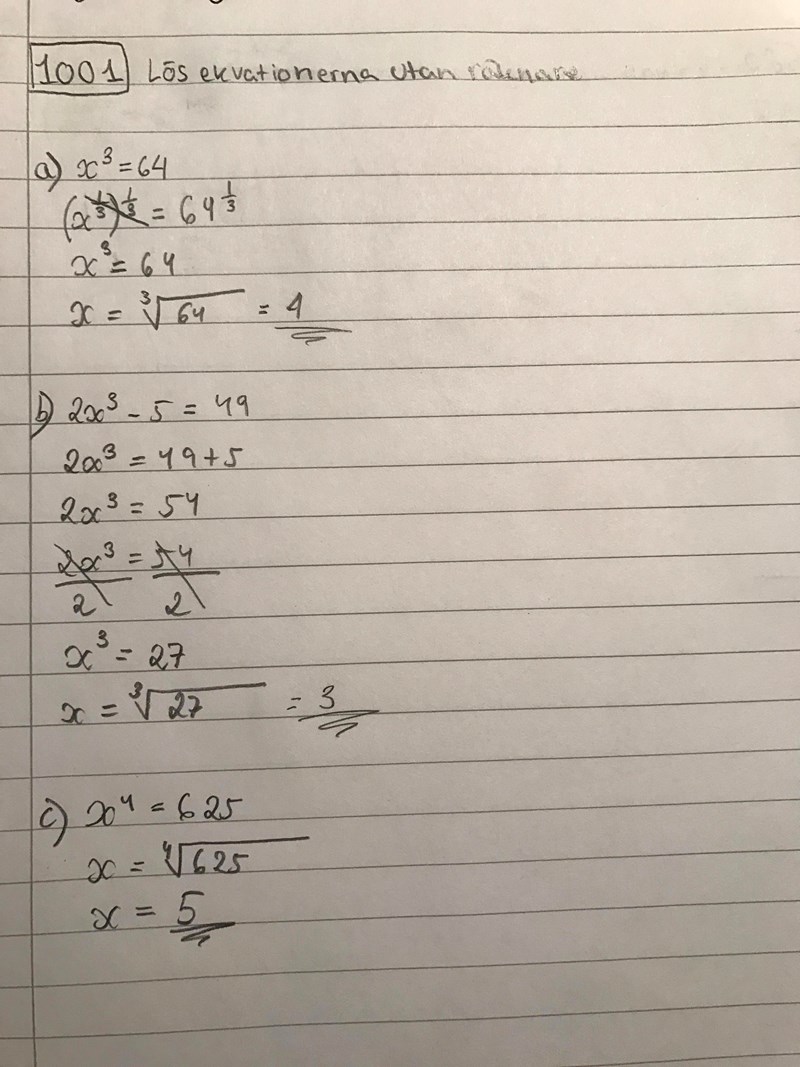 1001 Lös ekvationerna utan räknare
a) x³ = 64
(x^{1/3})^{1/3} = 64^{1/3}
x³ = 64
x = ∛64 = 4
b) 2x³ - 5 = 49
2x³ = 49 + 5
2x³ = 54
2x³/2 = 54/2
x³ = 27
x = ∛27 = 3
c) x⁴ = 625
x = ∜625
x = 5